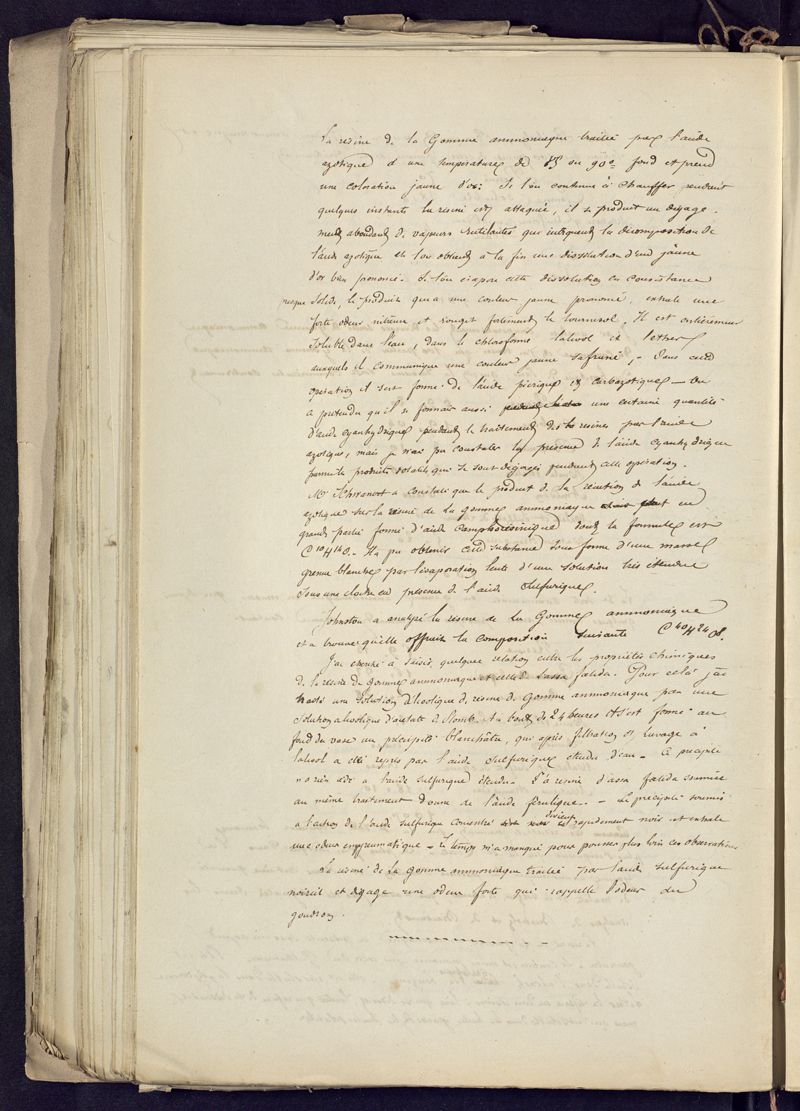 La résine de la Gomme ammoniaque traitée par l'acide
azotique à une température de 85 ou 90° fond et prend
une coloration jaune d'or. Si l'on continue à chauffer pendant
quelques instants la résine est attaquée, il se produit un dégage-
ment abondant de vapeurs rutilantes qui indiquent la décomposition de
l'acide azotique et l'on obtient à la fin une dissolution d'un jaune
d'or bien prononcé. Si l'on évapore cette dissolution en consistance
presque solide, le produit qui a une couleur jaune prononcé, exhale une
forte odeur nitreuse et rougit fortement le tournesol. Il est entièrement
soluble dans l'eau, dans le chloroforme l'alcool et l'éther
auxquels il communique une couleur jaune safrané. - Dans cette
opération il s'est formé de l'acide picrique et carbazotique - On
a prétendu qu'il se formait aussi une certaine quantité
d'acide cyanhydrique pendant le traitement des résines par l'acide
azotique, mais je n'ai pu constater la présence de l'acide cyanhydrique
parmi les produits volatils qui se sont dégagés pendant cette opération.
Mr Schwanert a constaté que le produit de la réaction de l'acide
azotique sur la résine de la gomme ammoniaque est en
grande partie formé d'acide camphorésinique dont la formule est
C10H14O. - Il a pu obtenir cette substance sous forme d'une masse
grenue blanche par l'évaporation lente d'une solution très étendue
sous une cloche en présence de l'acide sulfurique.
Johnston a analysé la résine de la Gomme ammoniaque
et a trouvé qu'elle offrait la composition suivante C40H24O8.
J'ai cherché à saisir quelque relation entre les propriétés chimiques
de la résine de gomme ammoniaque et celle de l'assa fœtida. Pour cela j'ai
traité une solution alcoolique de résine de Gomme ammoniaque par une
solution alcoolique d'acétate de plomb. Au bout de 24 heures il s'est formé au
fond du vase un précipité blanchâtre, qui après filtration et lavage à
l'alcool a été repris par l'acide sulfurique étendu d'eau - Ce précipité
n'a rien cédé à l'acide sulfurique étendu. - La résine d'assa fœtida soumise
au même traitement donne de l'acide férulique. - Le précipité soumis
à l'action de l'acide sulfurique concentré devient rapidement noir et exhale
une odeur empyreumatique - le temps m'a manqué pour pousser plus loin ces observations
La résine de la gomme ammoniaque traitée par l'acide sulfurique
noircit et dégage une odeur forte qui rappelle l'odeur du
goudron.